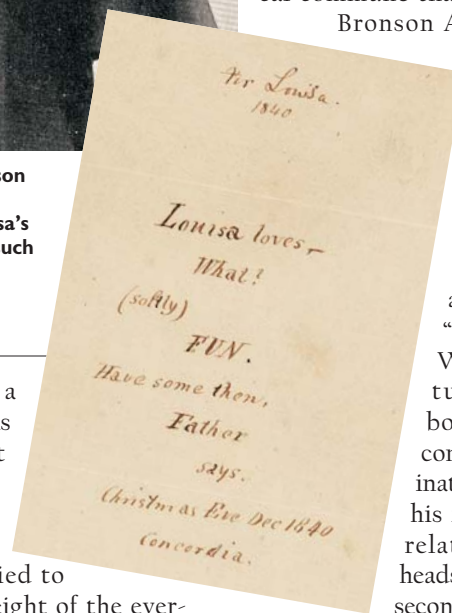 Bronson A
son
sa's
such
for Louisa.
1840
Louisa loves,—
What?
(softly)
FUN.
Have some then,
Father
says.
Christmas Eve Dec 1840
Concordia.
a
s
t
ied to
eight of the ever-
a
"
W
tu
bo
con
inat
his
relat
heads
secon